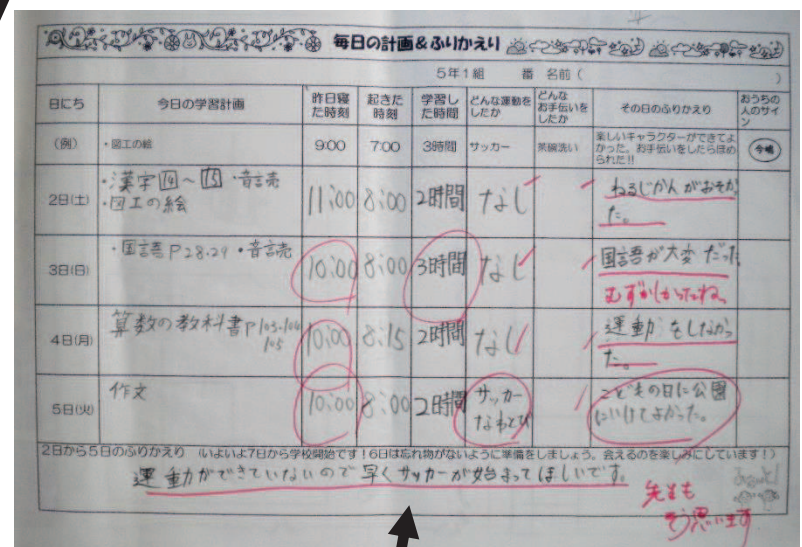 毎日の計画&ふりかえり
5年1組 番 名前( )
日にち 今日の学習計画 昨日寝た時刻 起きた時刻 学習した時間 どんな運動をしたか どんなお手伝いをしたか その日のふりかえり おうちの人のサイン
(例) ・図工の絵 9:00 7:00 3時間 サッカー 茶碗洗い 楽しいキャラクターができてよかった。お手伝いをしたらほめられた!!
2日(土) ・漢字14~15 ・音読 11:00 8:00 2時間 なし ねるじかんがおそかった。
・図工の絵
3日(日) ・国語P28.29 ・音読 10:00 8:00 3時間 なし 国語が大変だった
むずかしかったね。
4日(月) 算数の教科書P103.104 10:00 8:15 2時間 なし 運動をしなかった。
105
5日(火) 作文 10:00 8:00 2時間 サッカー なわとび こどもの日に公園にいけてよかった。
2日から5日のふりかえり (いよいよ7日から学校開始です!6日は忘れ物がないように準備をしましょう。会えるのを楽しみにしています!)
運動ができていないので早くサッカーが始まってほしいです。
先生も
そう思います